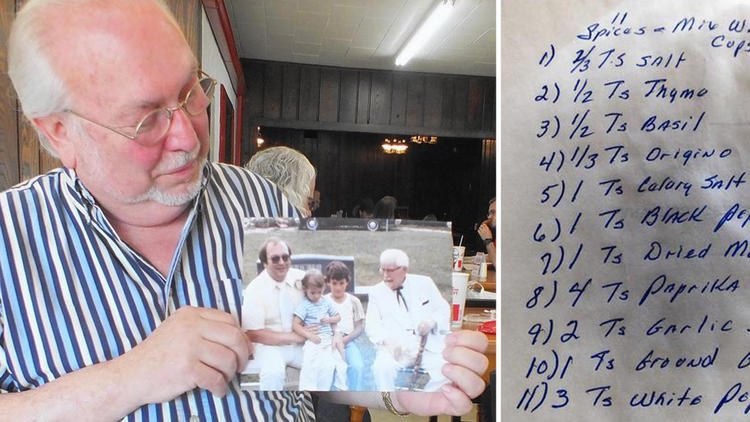 11
Spices - Mix W
Cups
1) 2/3 Ts Salt
2) 1/2 Ts Thyme
3) 1/2 Ts Basil
4) 1/3 Ts Origino
5) 1 Ts Celary Salt
6) 1 Ts Black Pep
7) 1 Ts Dried M
8) 4 Ts Paprika
9) 2 Ts Garlic S
10) 1 Ts Ground G
11) 3 Ts White Pep